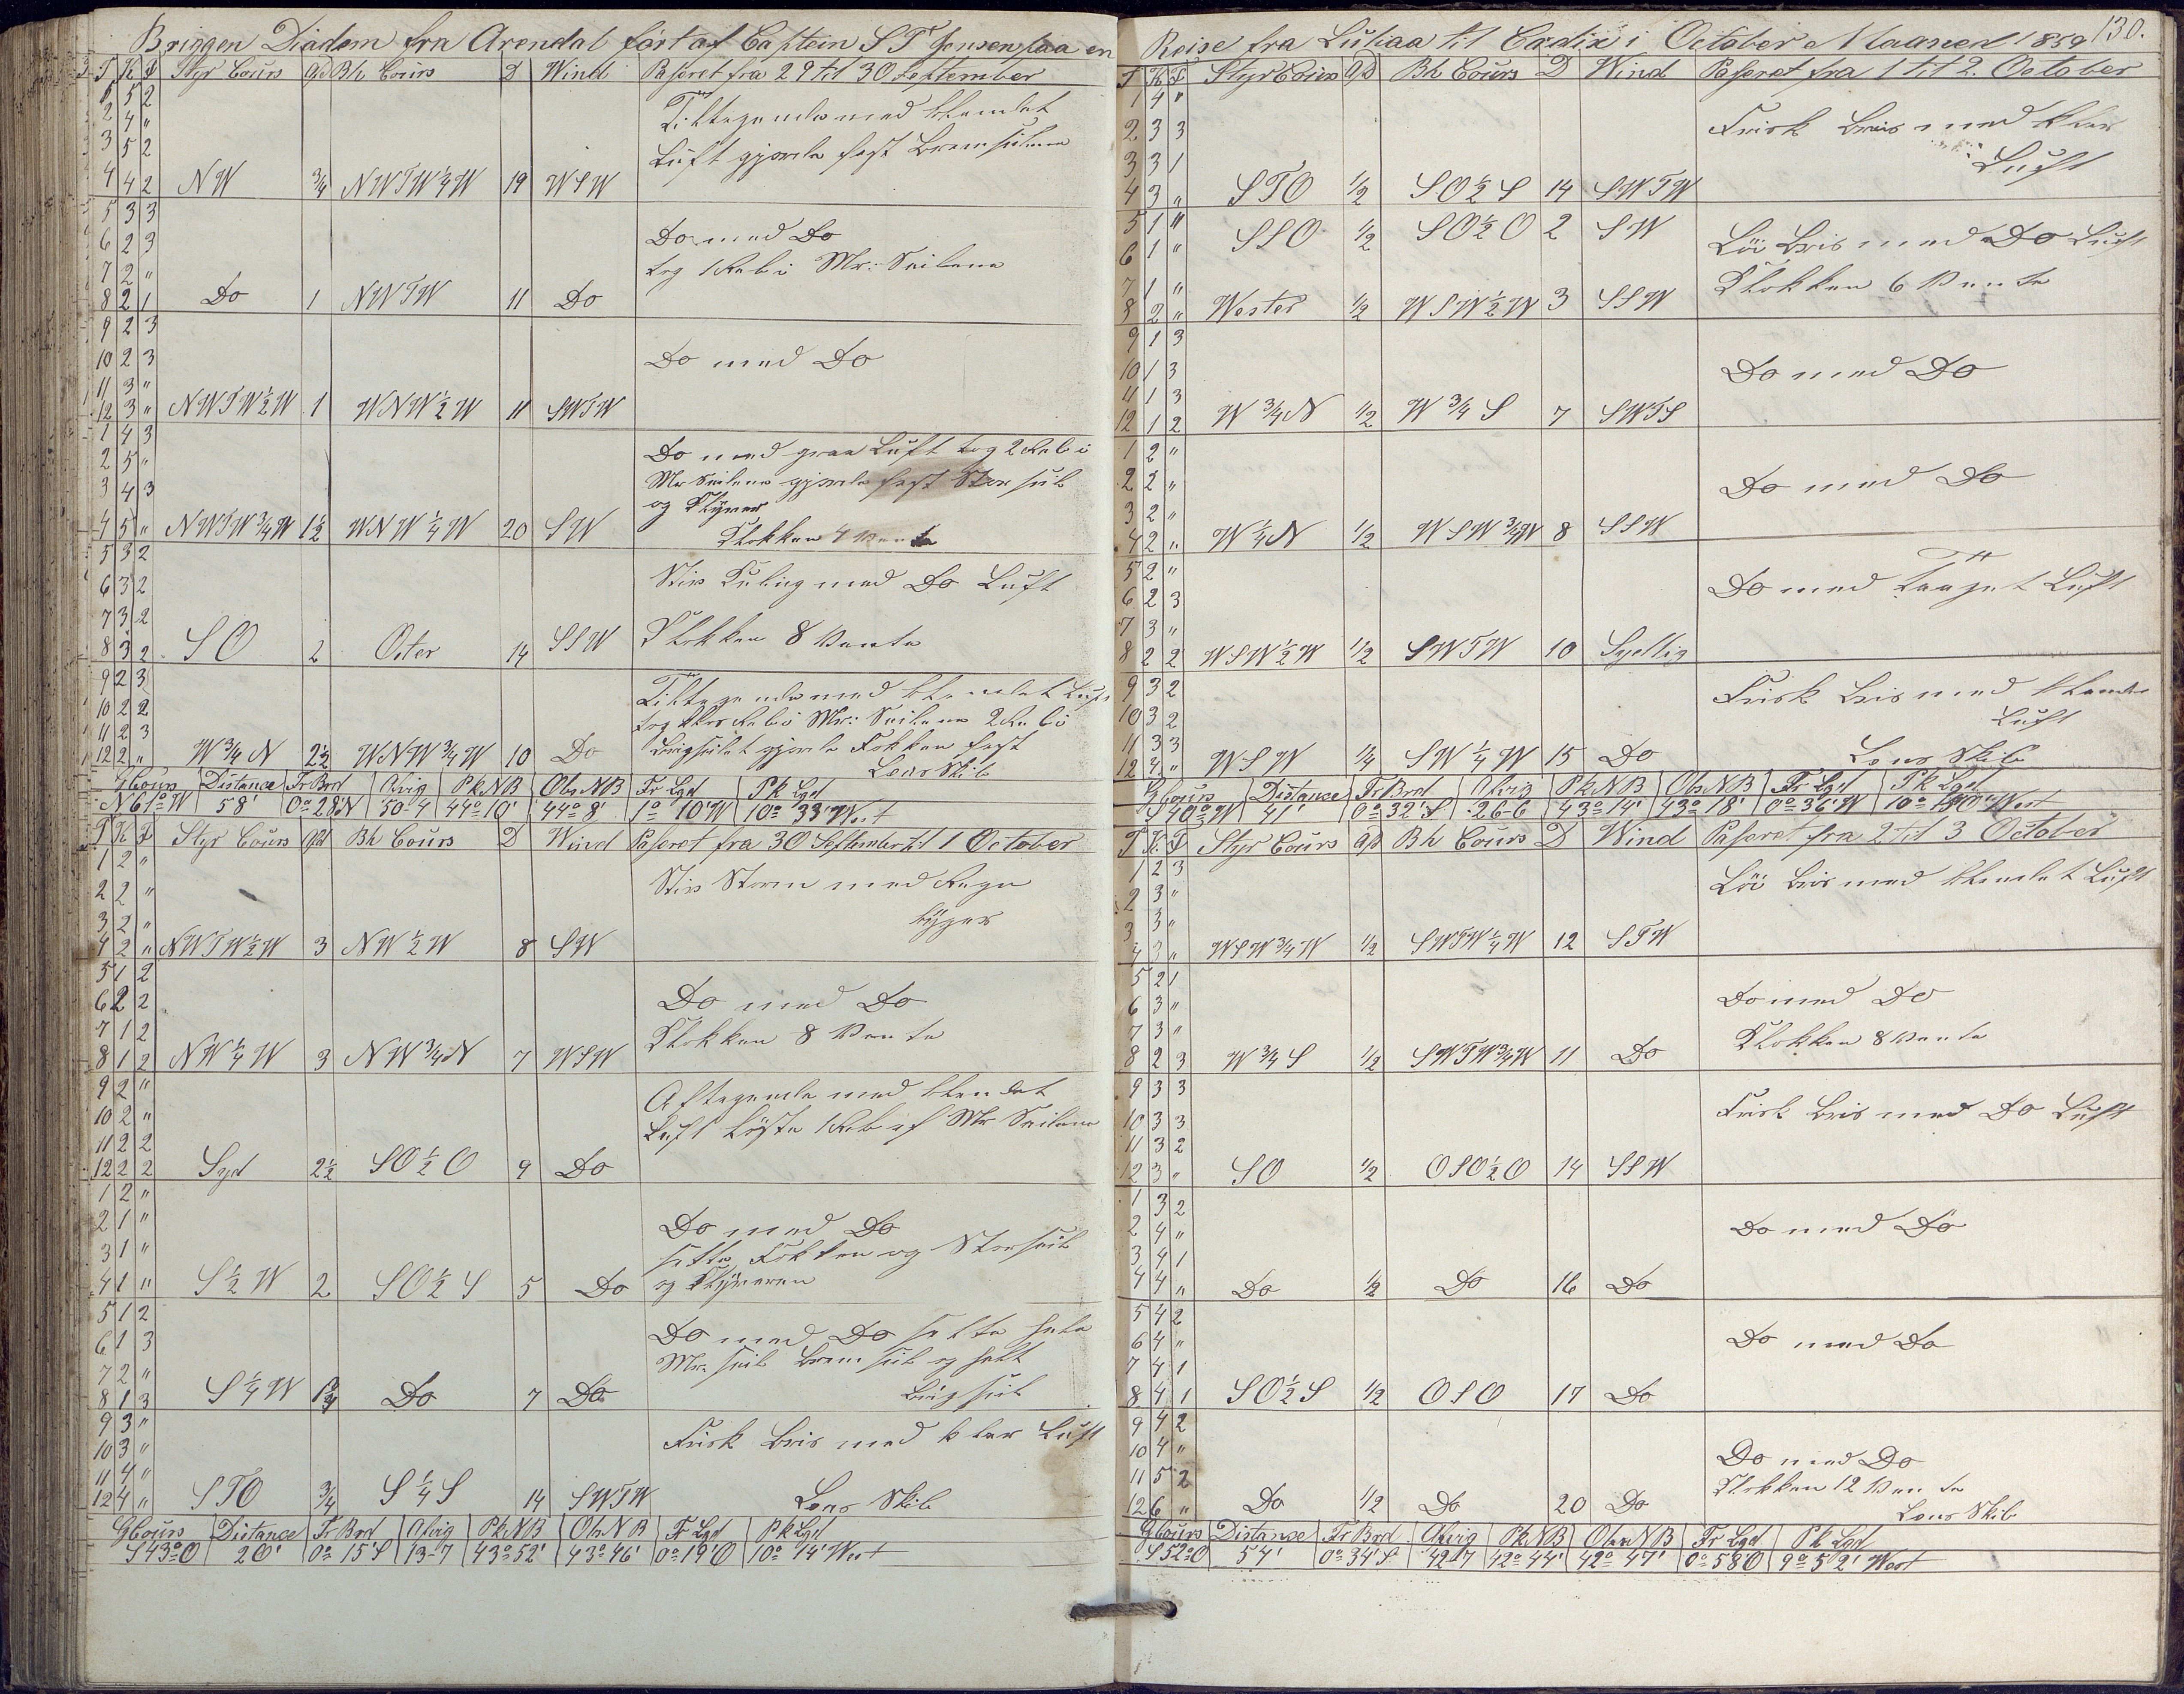 Briggen Diadem fra Arendal ført af Captein S T Jensen paa en
T K F Styr Cours Afd Bh Cours D Wind Paseret fra 29 til 30 September
1 5 2
2 4 "
3 5 2
4 4 2 NW 3/4 NWTW1/4W 19 WSW
Tiltagende med blendet
Luft gjorde fast Bramseilene
5 3 3
6 2 3
7 2 "
8 2 1 Do 1 NWTW 11 Do
Do med Do
tog 1 Reb i Mr: Seilene
9 2 3
10 2 3
11 3 "
12 3 " NWTW1/2W 1 WNW1/2W 11 SWTW
Do med Do
1 4 3
2 5 "
3 4 3
4 5 " NWTW3/4W 1 1/2 WNW1/4W 20 SW
Do med graa Luft tog 2 Reb i
Mr Seilene gjorde fast Stor seil
og Klyver
Klokken 4 Vente
5 3 2
6 3 2
7 3 2
8 3 2 SO 2 Oster 14 SSW
Stiv Kuling med Do Luft
Klokken 8 Vente
9 2 3
10 2 2
11 2 3
12 2 " W3/4N 2 1/2 WNW3/4W 10 Do
Tiltagende med blendet Luft
tog Reb i Mr: Seilene 2 Reb i
Brigseilet gjorde Fokken fast
Lens Skib
GCours Distance Fr Brd Afvig Pk NB Obs NB Fr Lgd Pk Lgd
N 61° W 58' 0° 28' N 50-4 44° 10' 44° 8' 1° 10' W 10° 33' West
T K F Styr Cours Afd Bh Cours D Wind Paseret fra 30 September til 1 October
1 2 "
2 2 "
3 2 "
4 2 " NWTW1/2W 3 NW1/2W 8 SW
Stiv Storm med Regn
byger
5 1 2
6 2 2
7 1 2
8 1 2 NW1/4W 3 NW3/4N 7 WSW
Do med Do
Klokken 8 Vente
9 2 "
10 2 "
11 2 2
12 2 2 Syd 2 1/2 SO1/2O 9 Do
Aftagende med blendet
Luft løste 1 Reb af Mr Seilene
1 2 "
2 1 "
3 1 "
4 1 " S1/2W 2 SO1/2S 5 Do
Do med Do
sette Fokken og Storseil
og Klyveren
5 1 2
6 1 3
7 2 "
8 1 3 S1/4W Do 7 Do
Do med Do sette hele
Mr: seil Bramseil og helt
Brigseil
9 3 "
10 3 "
11 4 "
12 4 " STO 3/4 S1/4S 14 SWTW
Frisk Bris med klar Luft
Lens Skib
GCours Distance Fr Brd Afvig Pk NB Obs NB Fr Lgd Pk Lgd
S 43° O 20' 0° 15' S 13-7 43° 52' 43° 46' 0° 19' O 10° 14' West
Reise fra Luhaa til Cadix i October Maaned 1859 130.
T K F Styr Cours Afd Bh Cours D Wind Paseret fra 1 til 2. October
1 4 "
2 3 3
3 3 1
4 3 " STO 1/2 SO1/2S 14 SWTW
Frisk Breis med klar
Luft
5 1 " SSO 1/2 SO1/2O 2 SW
6 1 "
7 1 "
8 2 " Wester 1/2 WSW1/2W 3 SSW
Løi Bris med Do Luft
Klokken 6 Vente
9 1 3
10 1 3
11 1 3
12 1 2 W3/4N 1/2 W3/4S 7 SWTS
Do med Do
1 2 "
2 2 "
3 2 "
4 2 " W1/4N 1/2 WSW3/4W 8 SSW
Do med Do
5 2 "
6 2 3
7 3 "
8 2 2 WSW1/2W 1/2 SWTW 10 Sydlig
Do med Taaget Luft
9 3 2
10 3 2
11 3 3
12 4 " WSW 1/4 SW1/4W 15 Do
Frisk Bris med blendet
Luft
Lens Skib
GCours Distance Fr Brd Afvig Pk NB Obs NB Fr Lgd Pk Lgd
S 40° W 41' 0° 32' S 26-6 43° 14' 43° 18' 0° 36' W West
T K F Styr Cours Afd Bh Cours D Wind Paseret fra 2 til 3 October
1 2 3
2 3 "
3 3 "
4 3 " WSW3/4W 1/2 SWTW1/4W 12 STW
Løi Bris med blendet Luft
5 2 1
6 3 "
7 3 "
8 2 3 W3/4S 1/2 SWTW3/4W 11 Do
Do med Do
Klokken 8 Vente
9 3 3
10 3 3
11 3 2
12 3 " SO 1/2 OSO1/2O 14 SSW
Frisk Bris med Do Luft
1 3 2
2 4 "
3 4 1
4 4 " Do 1/2 Do 16 Do
Do med Do
5 4 2
6 4 "
7 4 1
8 4 1 SO1/2S 1/2 OSO 17 Do
Do med Do
9 4 2
10 4 "
11 5 2
12 6 " Do 1/2 Do 20 Do
Do med Do
Klokken 12 Vente
Lens Skib
GCours Distance Fr Brd Afvig Pk NB Obs NB Fr Lgd Pk Lgd
S 52° O 54' 0° 34' S 42-7 42° 44' 42° 47' 0° 58 O 9° 52' West